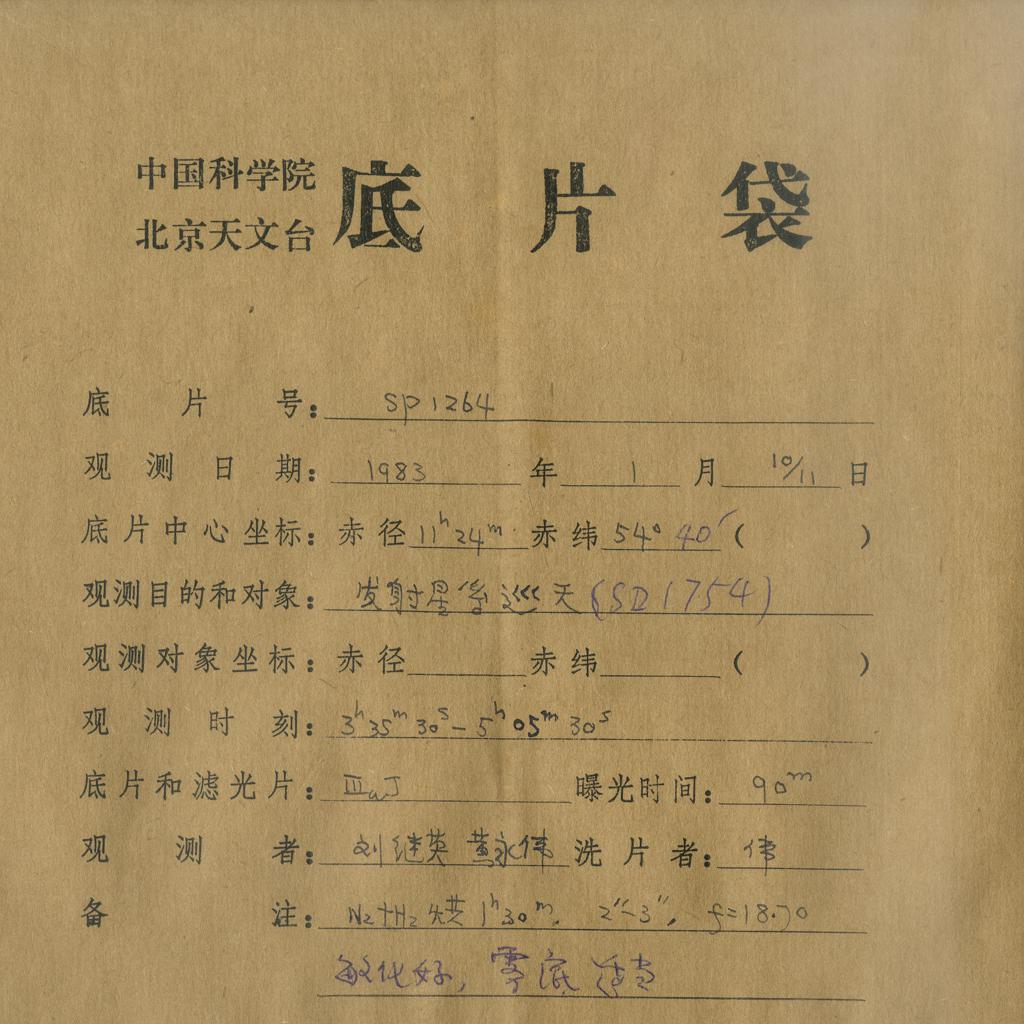 中国科学院
北京天文台
底片袋
底片号：SP1264
观测日期：1983年1月10/11日
底片中心坐标：赤径11ʰ24ᵐ赤纬54°40′（ ）
观测目的和对象：发射星系巡天(SD1754)
观测对象坐标：赤径 赤纬 （ ）
观测时刻：3ʰ35ᵐ30ˢ-5ʰ05ᵐ30ˢ
底片和滤光片：ⅢaJ 曝光时间：90ᵐ
观测者：刘继英 黄永伟 洗片者：伟
备注：N₂+H₂烘1ʰ30ᵐ. 2″-3″, f=18.70
敏化好, 雾底适当